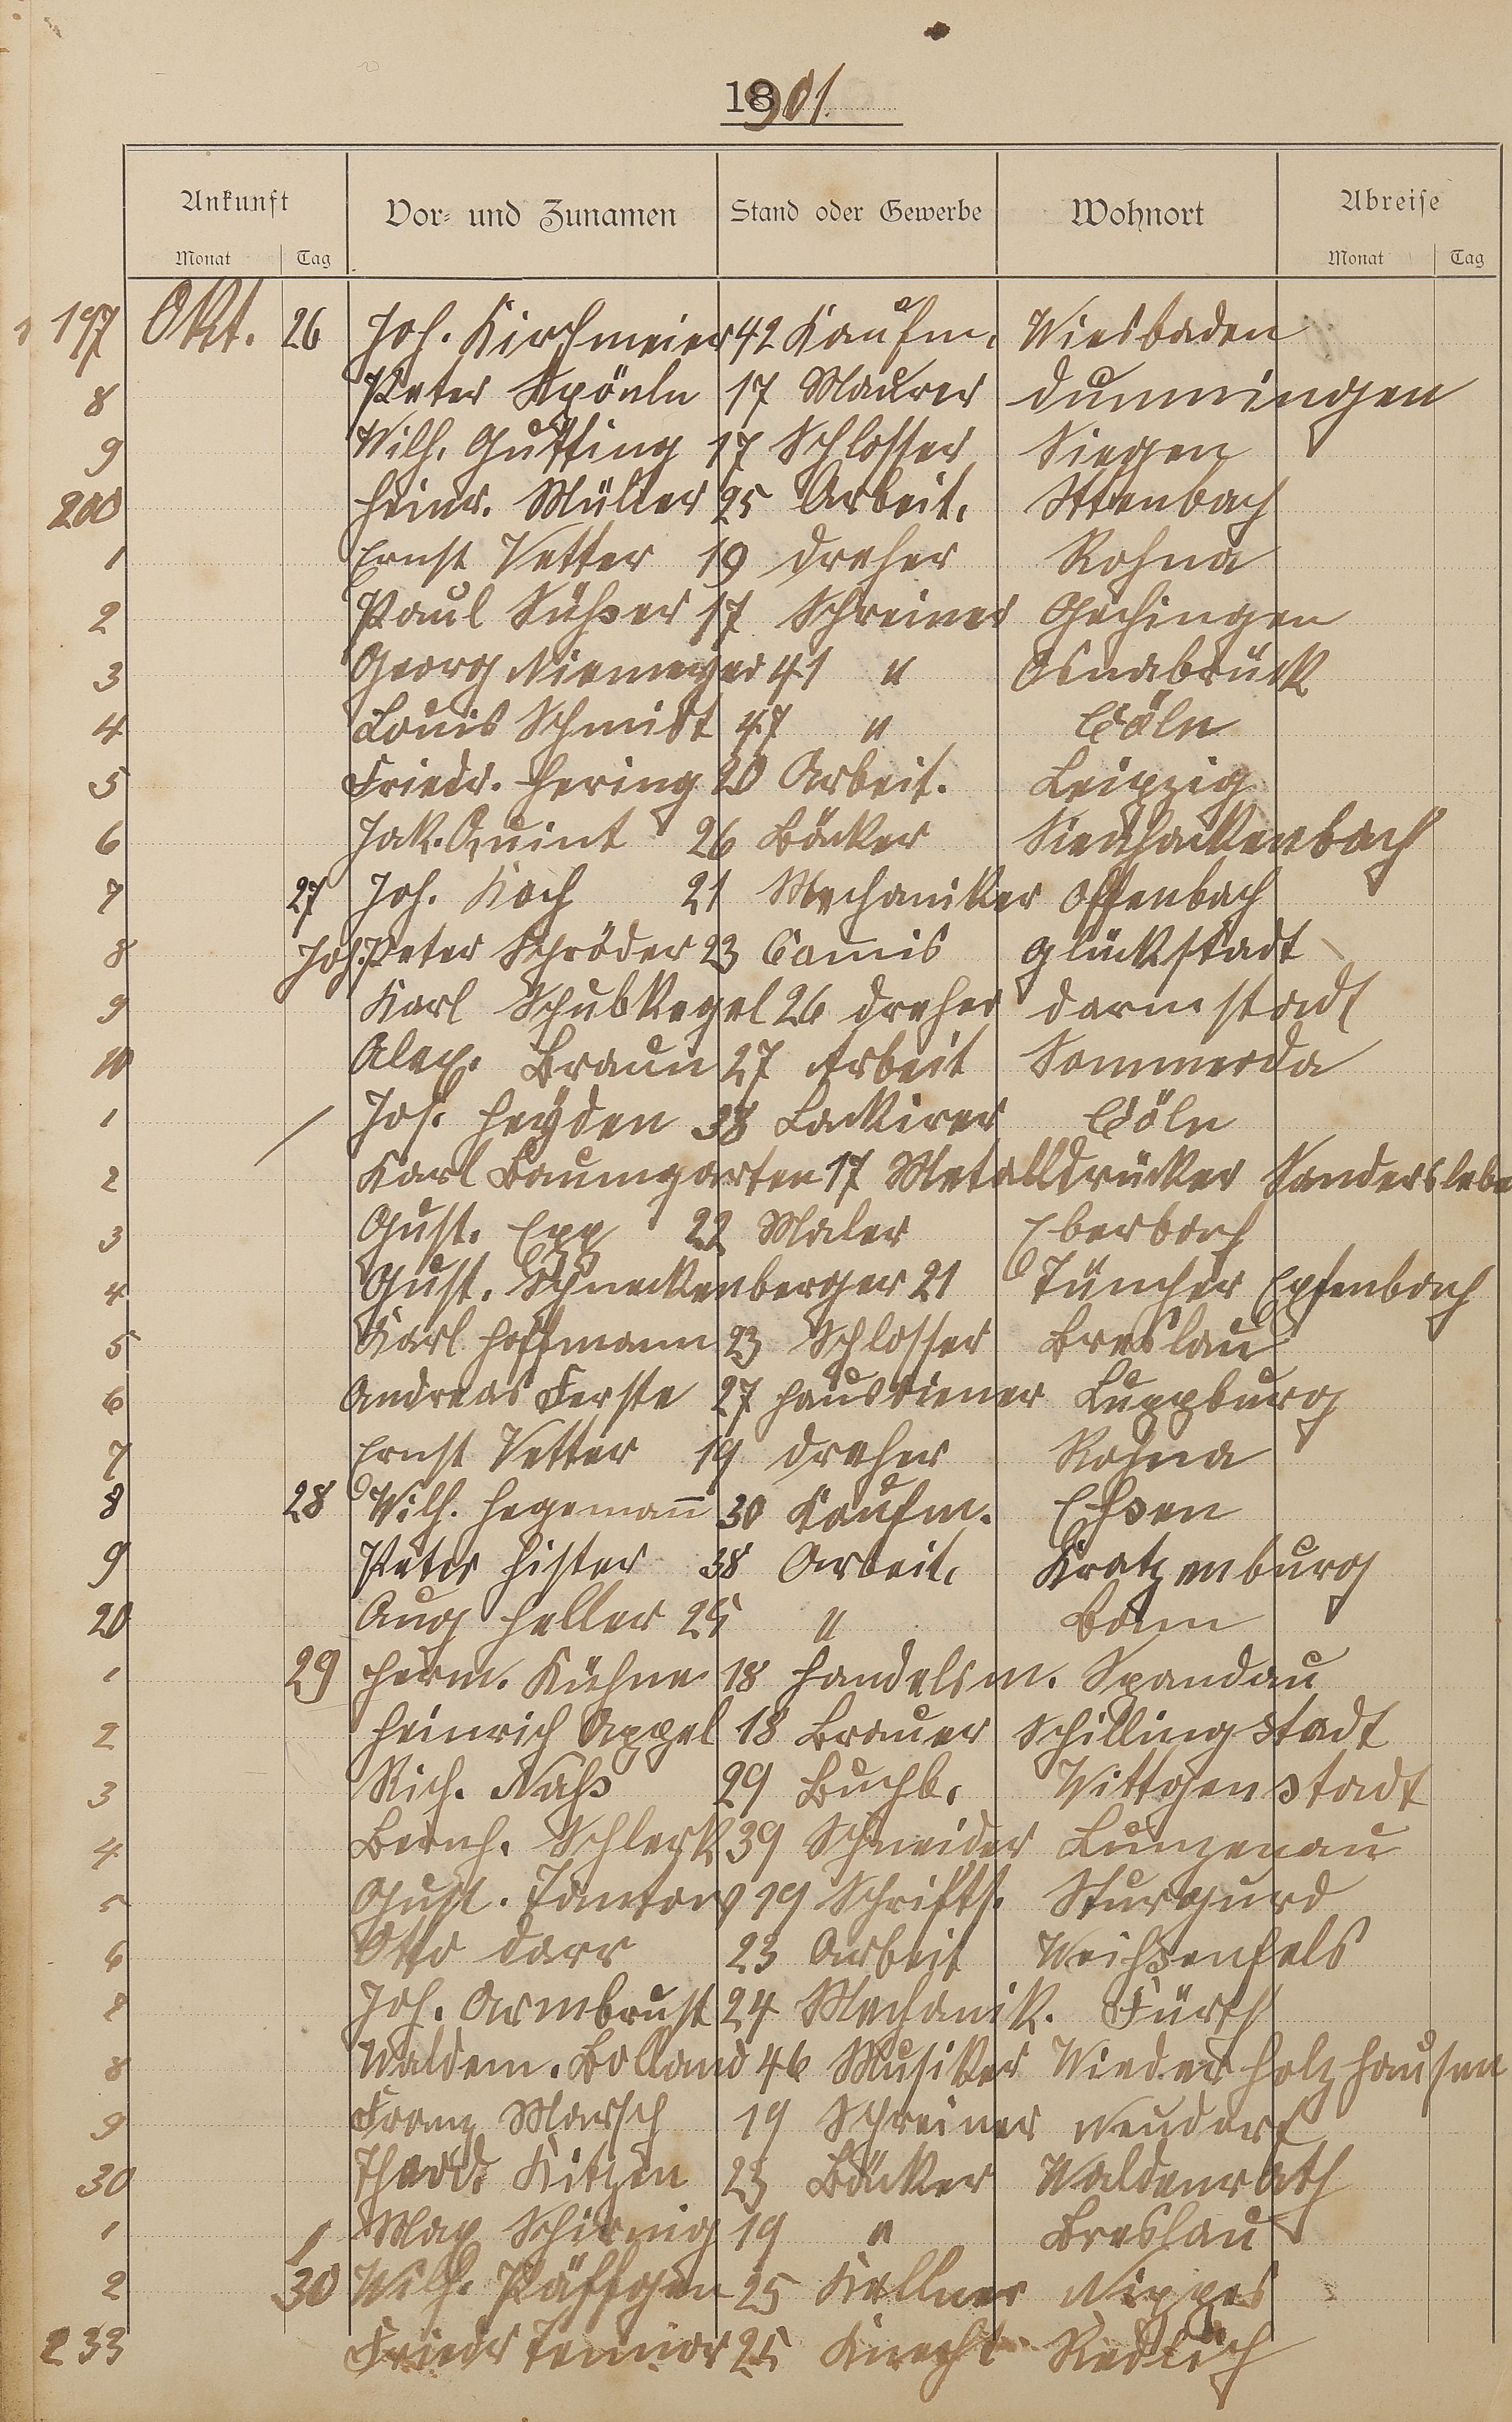 1901.
Ankunft Vor- und Zunamen Stand oder Gewerbe Wohnort Abreise
Monat Tag Monat Tag
197 Okt. 26 Joh. Kirchmeier 42 Kaufm. Wiesbaden
8 Peter 17 Maurer Dunningen
9 Wilh. Gutting 17 Schlosser Siegen
200 Heinr. Müller 25 Arbeit. Ottenbach
1 Ernst Vetter 19 Dreher Rohna
2 Paul Süßer 17 Schreiner Gechingen
3 Georg Niemeyer 41 " Osnabrück
4 Louis Schmidt 47 " Cöln
5 Friedr. Hering 20 Arbeit. Leipzig
6 Jak. Quint 26 Bäcker
7 27 Joh. Koch 21 Mechaniker Offenbach
8 Joh. Peter Schröder 23 Comis Glückstadt
9 Karl Schubkegel 26 Dreher Darmstadt
10 Alex. Braun 27 Arbeit Sommerda
1 Jos. Heyden 38 Lackirer Cöln
2 Karl Baumgarten 17 Metalldrücker Sanderslebe
3 Gust. Epp 22 Maler Eberbach
4 Gust. Schneckenberger 21 Tüncher Epfenbach
5 Karl Hoffmann 23 Schlosser Breslau
6 Andreas Ferste 27 Hausdiener Luppburg
7 Ernst Vetter 19 Dreher Rohna
8 28 Wilh. Hegemann̄ 30 Kaufm. Eßen
9 Peter Hister 38 Arbeit. Kratzenburg
20 Aug Heller 25 " Bonn
1 29 Herm. Kühne 18 Handelsm. Spandau
2 Heinrich Appel 18 Brauer Schillingstadt
3 Rich. Naß 29 Buchb. Wittgenstadt
4 Bernh. Schlerk 39 Schneider Lunzenau
5 Gust. 19 Schrifts.
6 Otto Darr 23 Arbeit Weißenfels
8 Joh. Armbrust 24 Mechanik. Fürth
8 Waldem. Bolland 46 Musiker Niederholzhausen
9 Franz Marsch 19 Schreiner Neudorf
30 Theod. Kitzen 23 Bäcker Waldenrath
1 Max Schirmig 19 " Breslau
2 30 Wilh. Päffgen 25 Kellner Nippes
233 Friedr 25 Knecht